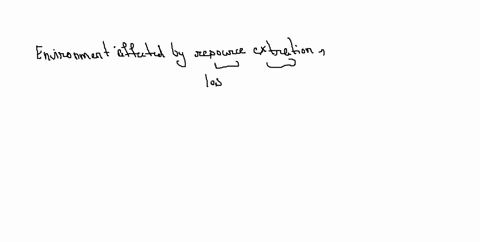 Environment affected by repource extration,
los